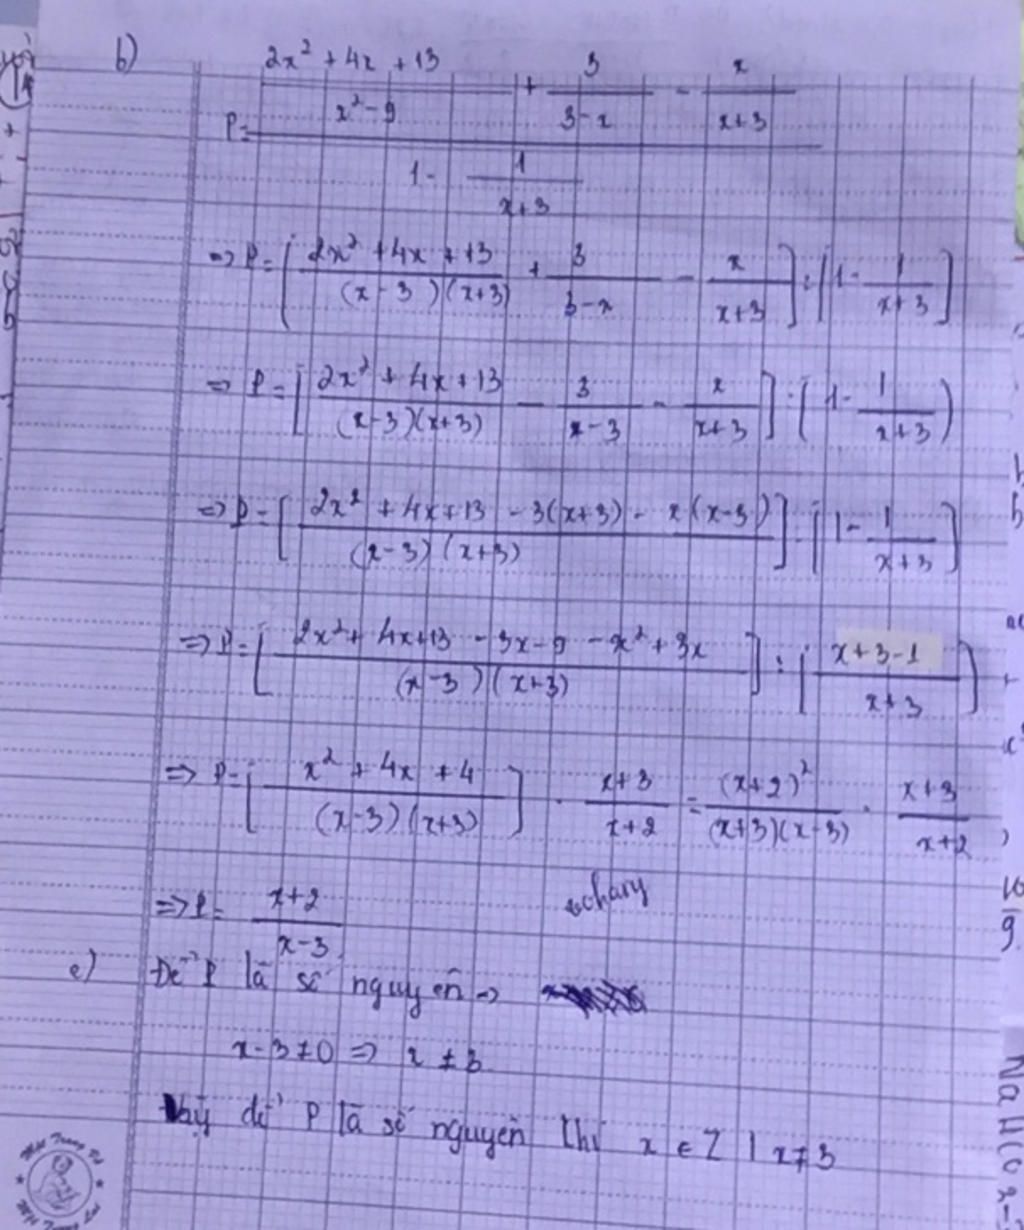 b)
2x² + 4x + 13 / x² - 9 + 3 / 3 - x - x / x + 3
P =
1 - 1 / x + 3
=> P = [ 2x² + 4x + 13 / (x - 3)(x + 3) + 3 / 3 - x - x / x + 3 ] : [ 1 - 1 / x + 3 ]
=> P = [ 2x² + 4x + 13 / (x - 3)(x + 3) - 3 / x - 3 - x / x + 3 ] : ( 1 - 1 / x + 3 )
=> P = [ 2x² + 4x + 13 - 3(x + 3) - x(x - 3) / (x - 3)(x + 3) ] : [ 1 - 1 / x + 3 ]
=> P = [ 2x² + 4x + 13 - 3x - 9 - x² + 3x / (x - 3)(x + 3) ] : ( x + 3 - 1 / x + 3 )
=> P = [ x² + 4x + 4 / (x - 3)(x + 3) ] . x + 3 / x + 2 = (x + 2)² / (x + 3)(x - 3) . x + 3 / x + 2
=> P = x + 2 / x - 3
c) Để P là số nguyên =>
x - 3 ≠ 0 => x ≠ 3
Vậy để P là số nguyên thì x ∈ Z | x ≠ 3